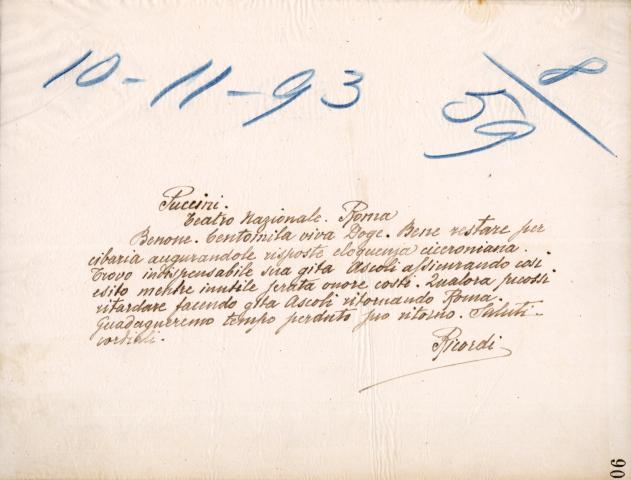 10-11-93 59/8
Puccini.
Teatro Nazionale. Roma
Benone. Centomila viva Doge. Bene restare per
cibaria augurandole risposte eloquenza ciceroniana.
Trovo indispensabile sua gita Ascoli assicurando così
esito mentre inutile serata onore costì. Qualora
ritardare facendo gita Ascoli ritornando Roma.
Guadagneremo tempo perduto suo ritorno. Saluti
cordiali.
Ricordi
90